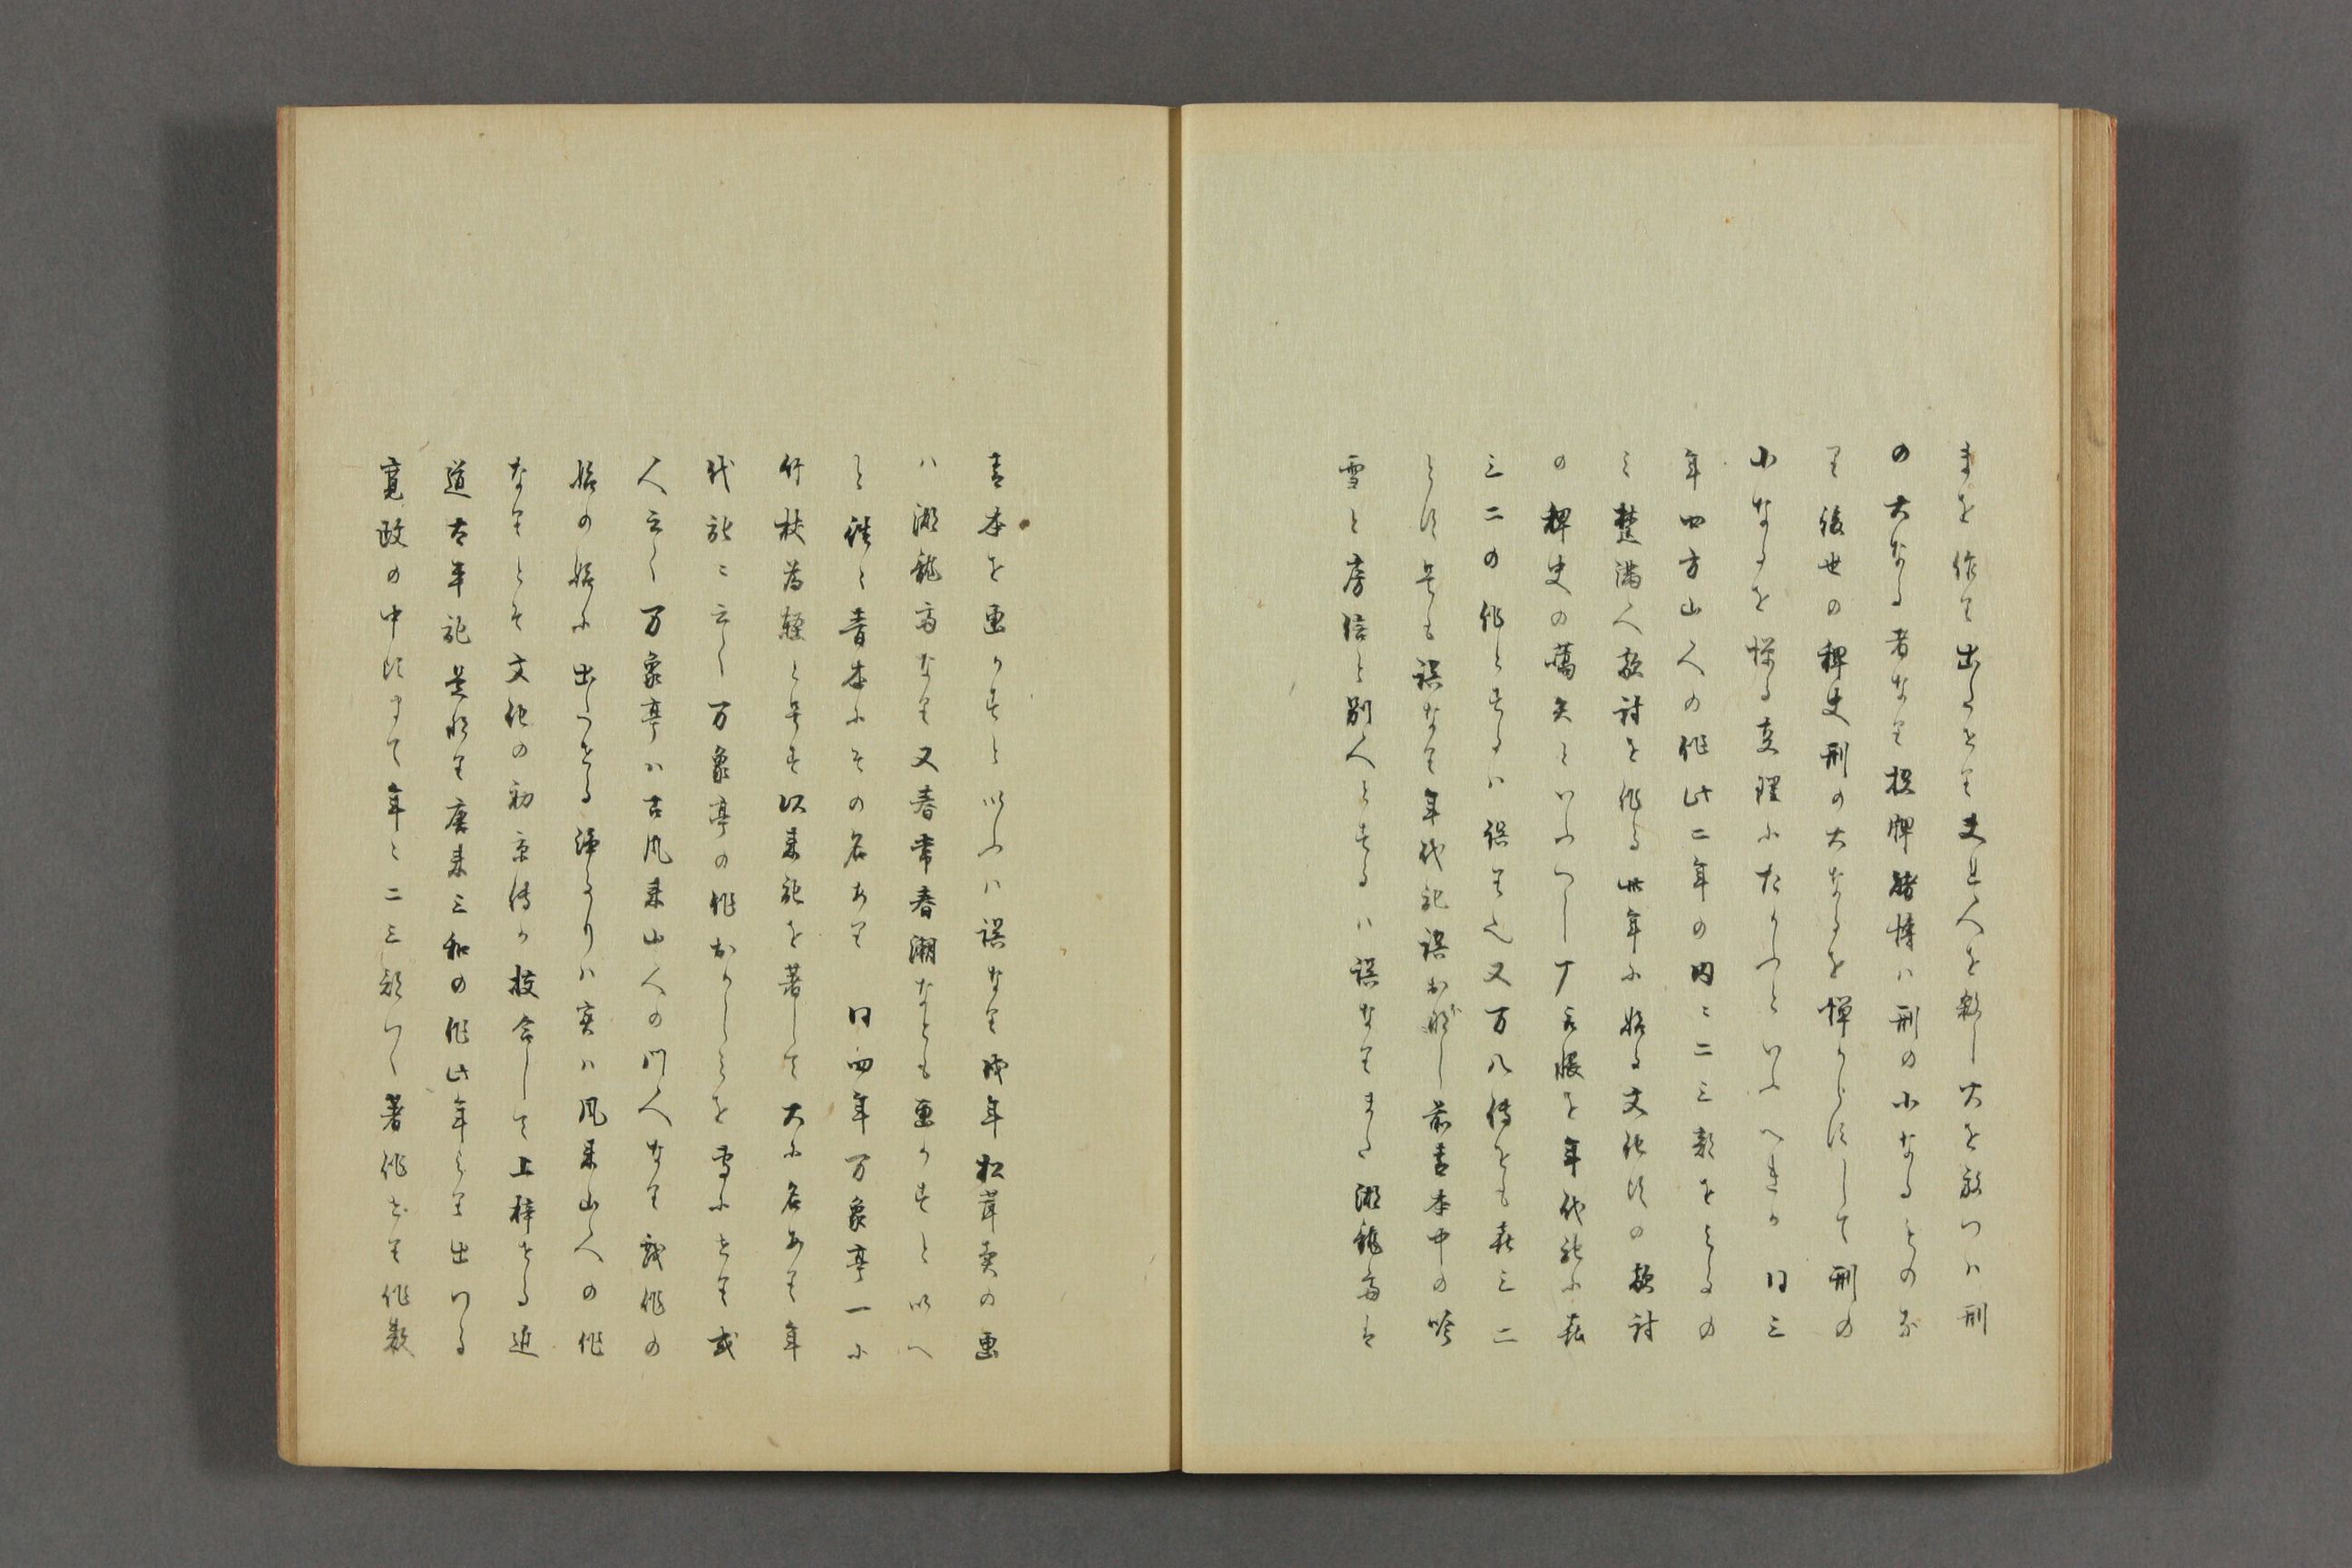 まを作て出たをり夫と人を殺し火を放つハ刑
の大なる者なり投牌賭博ハ刑の小なるもの然
り後世の稗史刑の大なるを憚からすして刑の
小なるを憚る事理にたかへりといふへきか 同三
年四方山人の作此二年の内に二三部をとるの
み楚満人敵討を作る此年に始る文化頃の敵討
の稗史の嚆矢といふへし 十二段を年代記に喜
三二の作とするハ誤り也又万八伝をも喜三二
とす是も誤なり年代記誤おほし前青本中の吟
雪と房信と別人とするハ誤なりまた湖龍斎は
青本を画かすと以ふハ誤なり戌年松茸売の画
ハ湖龍斎なり又春常春潮なとも画かすと以へ
と往々青本にその名あり 同四年万象亭一に
竹杖為軽と号す以来記を著して大に名あり年
代記に云く万象亭の作おかしみを専にせり或
人云く万象亭ハ古風来山人の門人なり戯作の
始の始に出たせる浄るりハ実ハ風来山人の作
なりとそ文化の初京伝か校合して上梓せる近
道古年記是なり唐来三和の作此年より出つる
寛政の中頃まて年に二三部つゝ著作せり作数